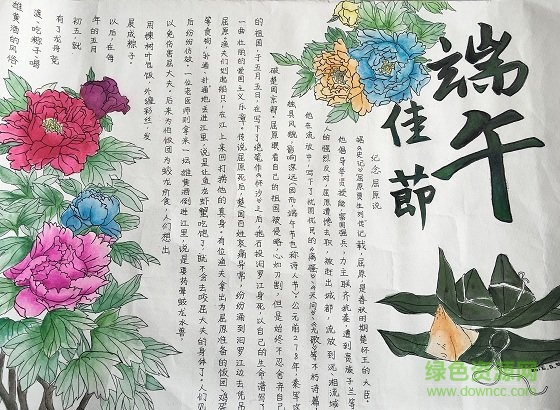 端午
佳節
纪念屈原说
据《史记》屈原贾生列传记载，屈原是春秋时期楚怀王的大臣。
他倡导举贤授能，富国强兵，力主联齐抗秦，遭到贵族子兰等
人的强烈反对，屈原遭馋去职，被赶出城都，流放到沅、湘流域
他在流放中，写下了忧国忧民的《离骚》《天问》《九歌》等不朽诗篇
独具风貌，影响深远（因而，端午节也称诗人节）公元前278年，秦军攻
破楚国京都。屈原眼看自己的祖国被侵略，心如刀割，但是始终不忍舍弃自己
的祖国，于五月五日，在写下了绝笔作《怀沙》之后，抱石投汨罗江身死，以自己的生命谱写了
一曲壮丽的爱国主义乐章。传说屈原死后，楚国百姓哀痛异常，纷纷涌到汨罗江边去凭吊
屈原。渔夫们划起船只，在江上来回打捞他的真身。有位渔夫拿出为屈原准备的饭团、鸡蛋
等食物，扑通、扑通地丢进江里，说是让鱼龙虾蟹吃饱了，就不会去咬屈大夫的身体了。人们见
后纷纷仿效。一位老医师则拿来一坛雄黄酒倒进江里，说是要药晕蛟龙水兽
以免伤害屈大夫。后来为怕饭团为蛟龙所食，人们想出
用楝树叶包饭，外缠彩丝，发
展成粽子。
以后，在每
年的五月
初五，就
有了龙舟竞
渡、吃粽子、喝
雄黄酒的风俗。
绿色资源网
www.downcc.com